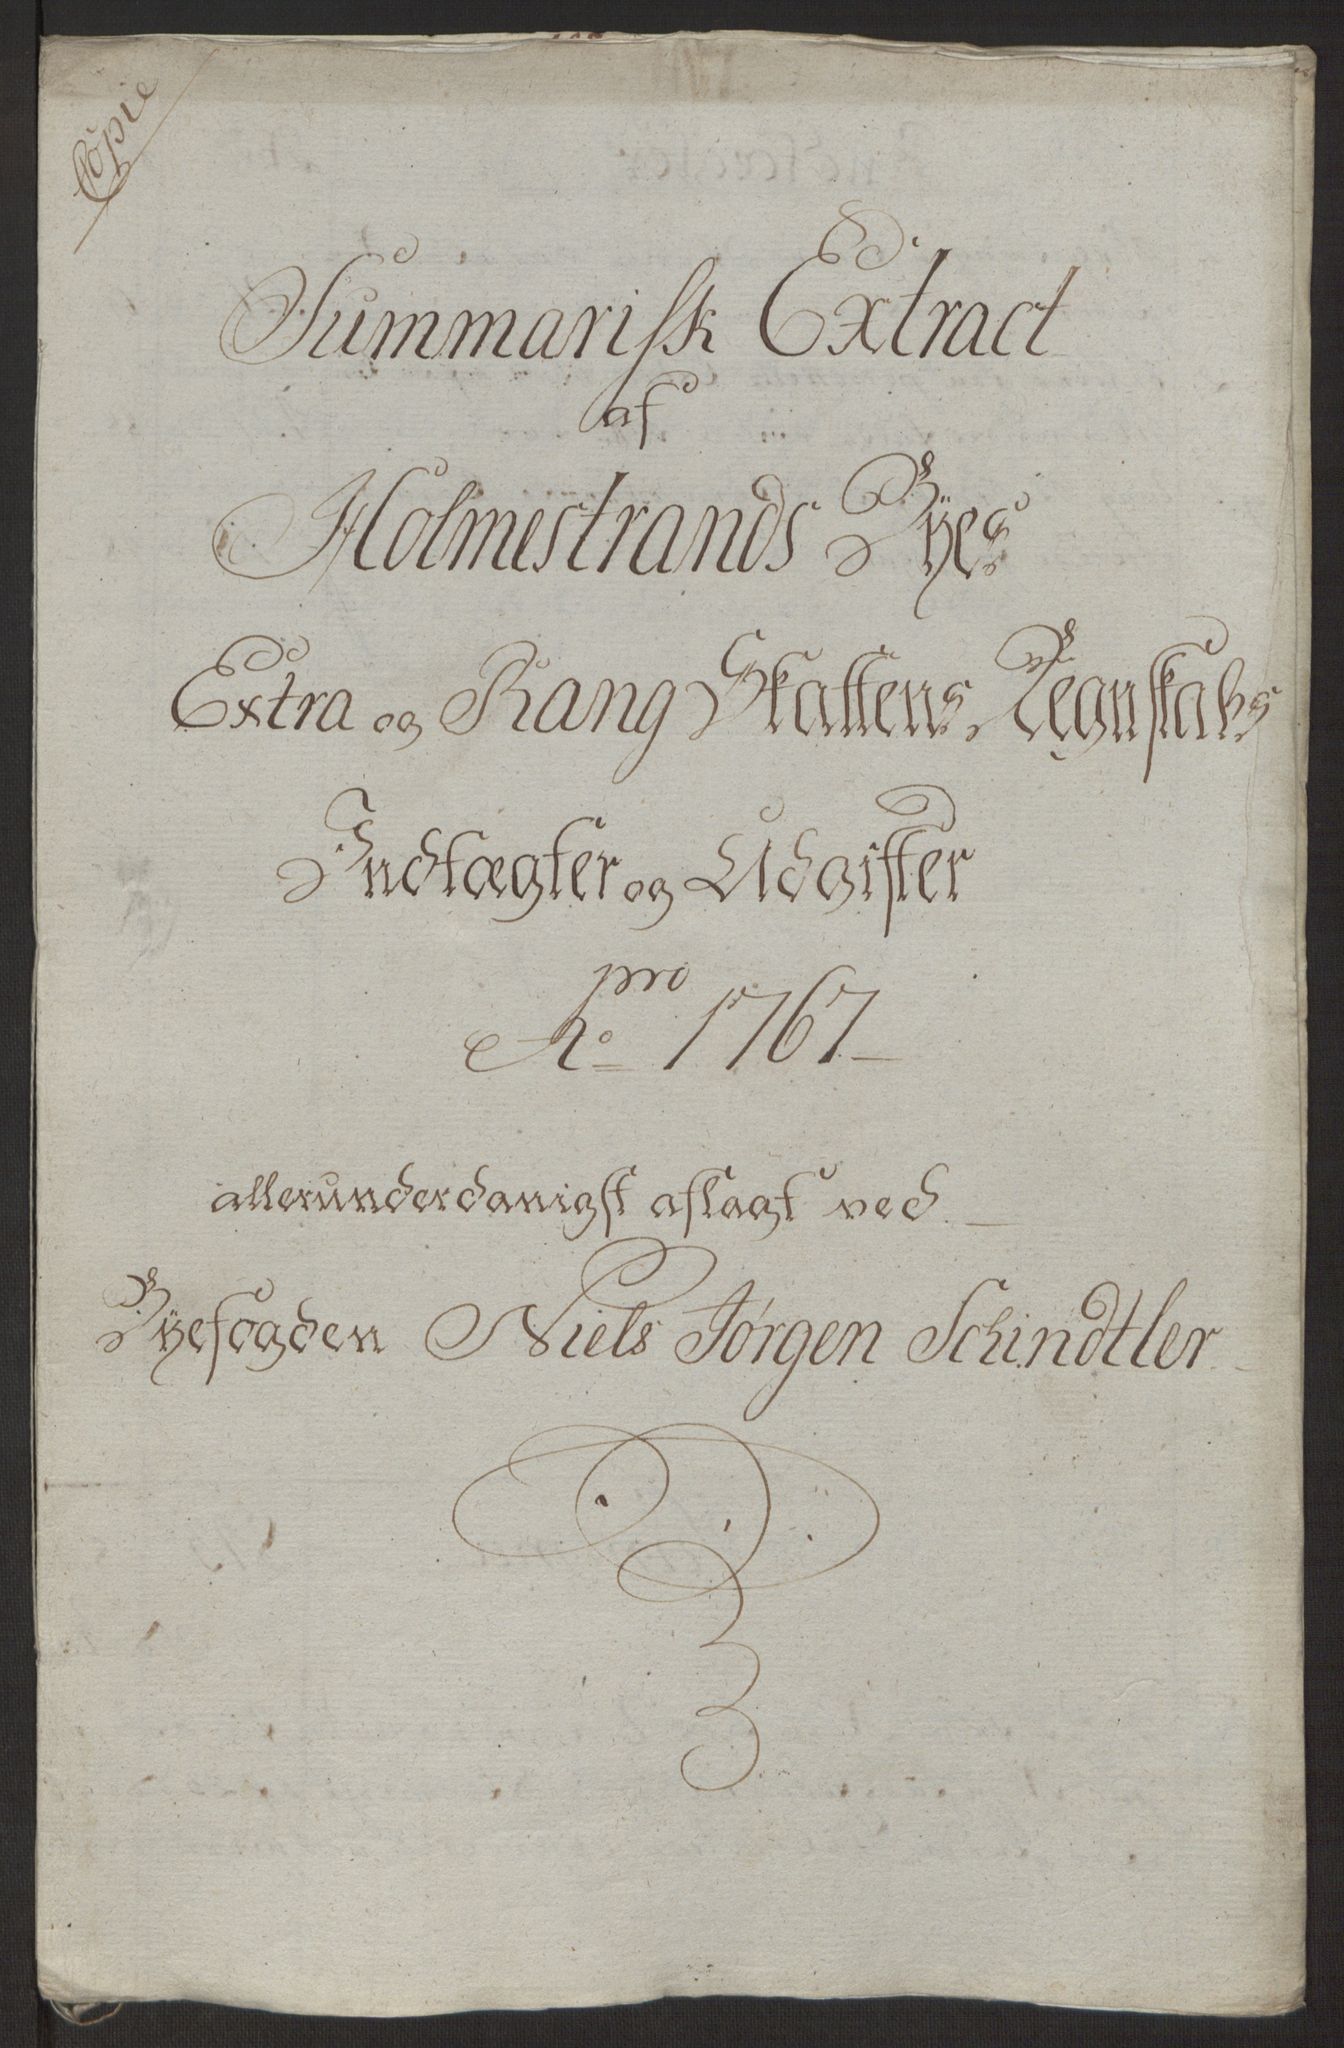 Copie
Summarisk Extract
af
Holmestrands Byes
Extra og Rang Skattens Regnskabs
Indtægter og Udgifter
pro
Ao 1767
allerunderdanigst aflagt ved
Byefogden Niels Jørgen Schindtler